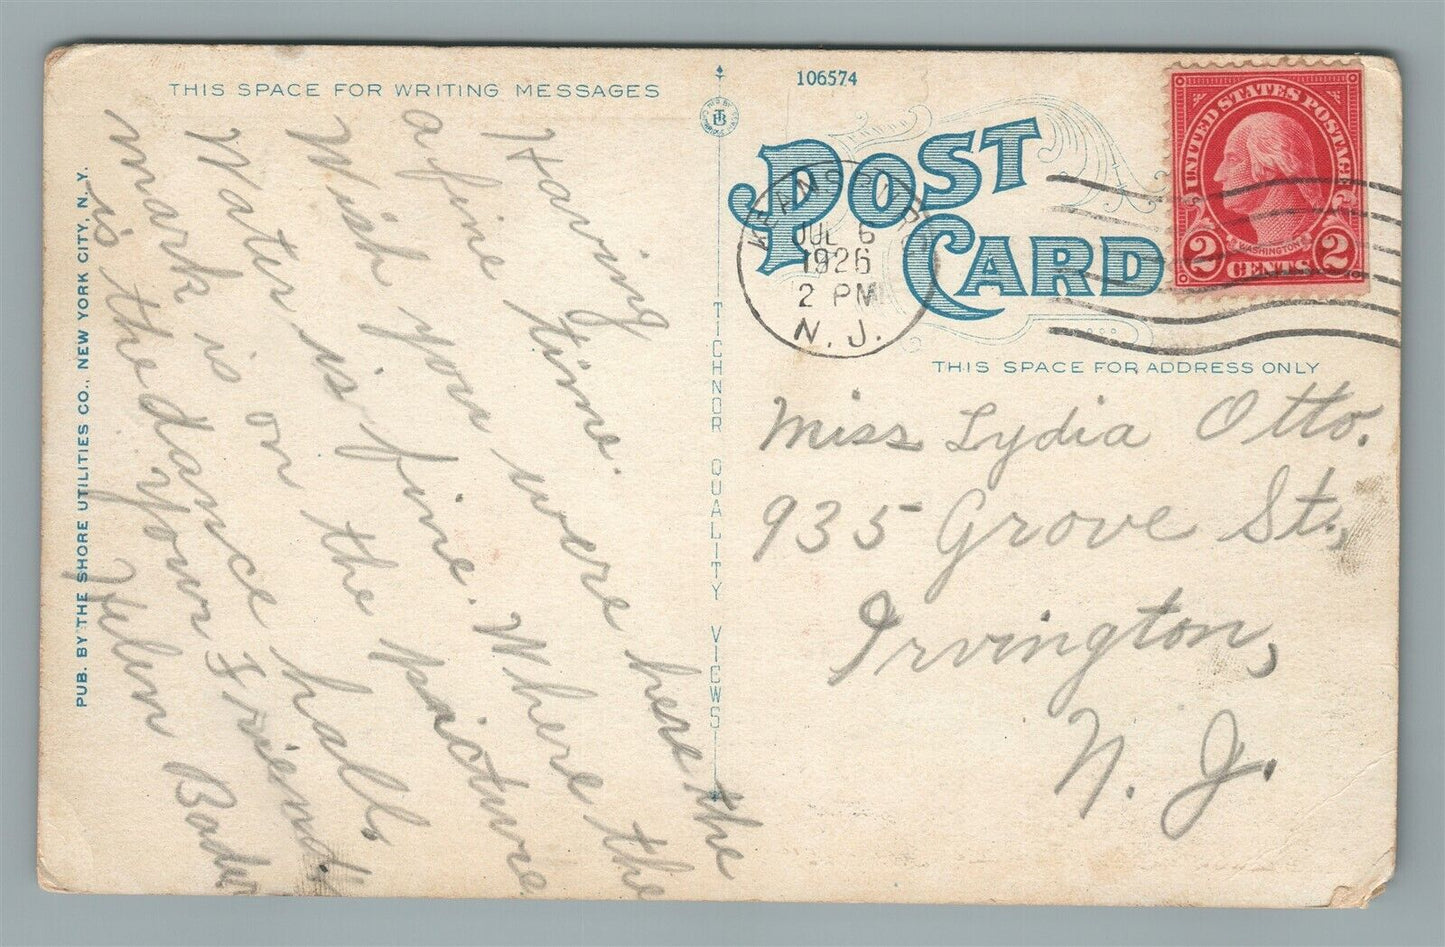 THIS SPACE FOR WRITING MESSAGES
Having
a fine time.
Wish you were here the
Water is fine. Where the
mark is on the picture
is the dance hall.
Your Friend,
Helen
PUB. BY THE SHORE UTILITIES CO., NEW YORK CITY, N. Y.
TICHNOR QUALITY VIEWS
106574
POST CARD
KEANSBURG
JUL 6
1926
2 PM
N. J.
UNITED STATES POSTAGE
WASHINGTON
2 CENTS 2
THIS SPACE FOR ADDRESS ONLY
Miss Lydia Otto.
935 Grove St.,
Irvington,
N. J.